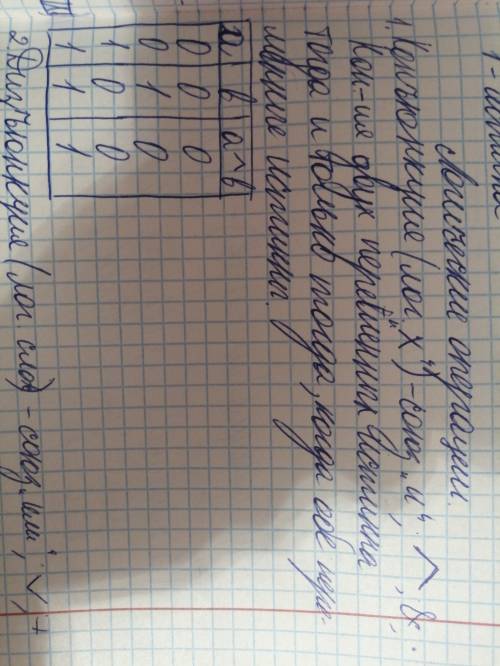 Логические операции.
1. Конъюнкция (лог. "х") - союз "и", ^, &, ·
Кон-ия двух переменных истинна
тогда и только тогда, когда обе пере-
менные истинны.
a b a^b
0 0 0
0 1 0
1 0 0
1 1 1
2. Дизъюнкция (лог. слож) - союз "или", v, +